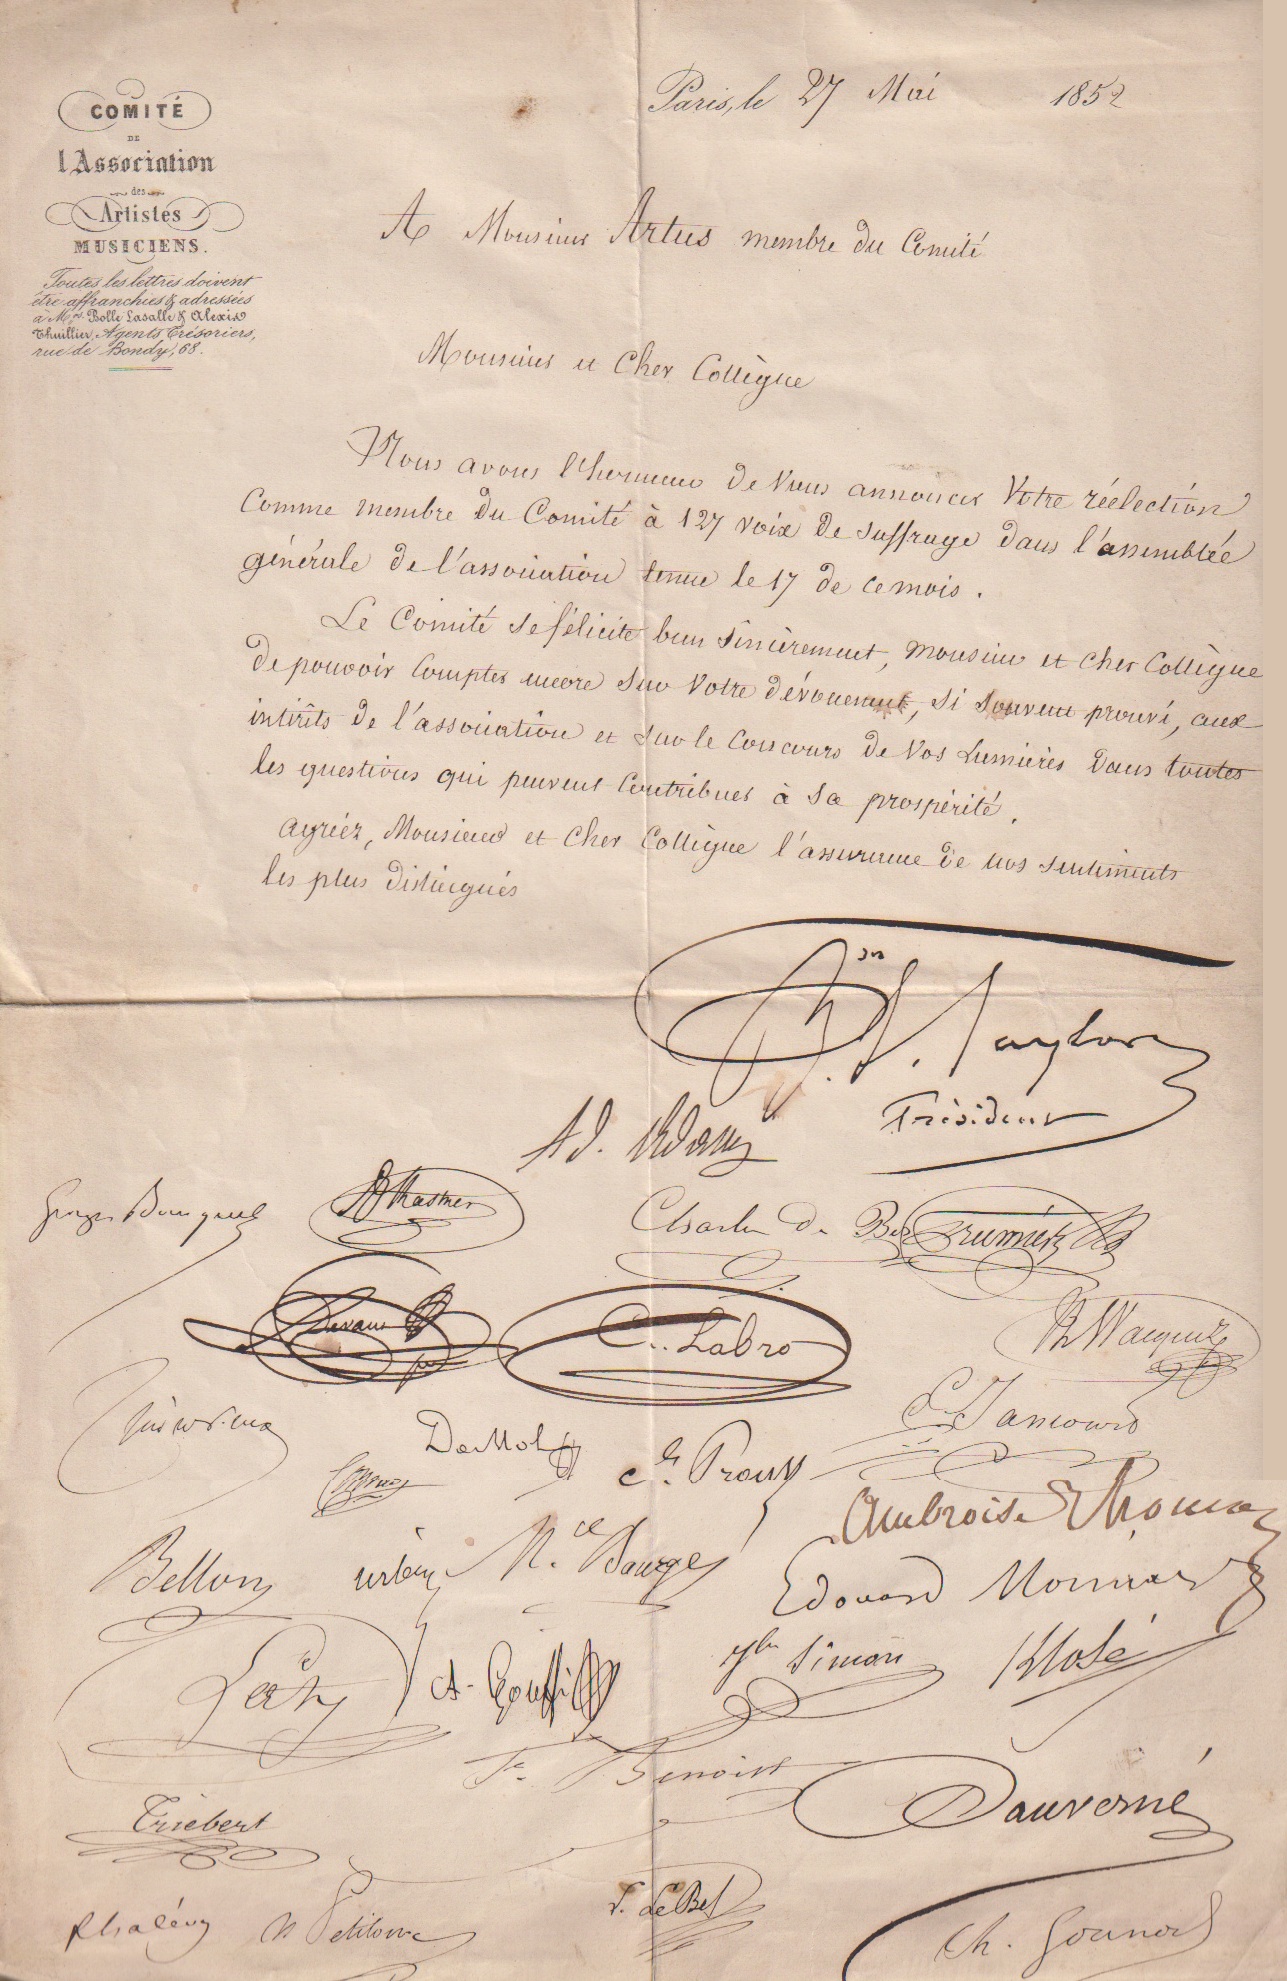 COMITÉ
DE
l'Association
des
Artistes
MUSICIENS.
Toutes les lettres doivent
être affranchies & adressées
à Mrs. Bolle Lasalle & Alexis
Thuillier, Agents Trésoriers,
rue de Bondy, 68.
Paris, le 27 Mai 1852
A Monsieur Artus membre du Comité
Monsieur et Cher Collègue
Nous avons l'honneur de Vous annoncer Votre réélection
Comme membre du Comité à 127 voix de suffrage dans l'assemblée
générale de l'association tenue le 17 de ce mois.
Le Comité se félicite bien sincèrement, Monsieur et Cher Collègue
de pouvoir Compter encore sur Votre dévouement, si souvent prouvé, aux
intérêts de l'association et sur le Concours de Vos Lumières dans toutes
les questions qui peuvent Contribuer à sa prospérité.
Agréez, Monsieur et Cher Collègue l'assurance de nos sentiments
les plus distingués
Bon J. Taylor
Président
Ad. Adam
Georges Bousquet
Kastner
Charles de Bez
Prumier
C. Labro
Wacquez
E. Jancourt
DeMol
ch. Prouy
Ambroise Thomas
Bellon
urbin
Mce Bourges
Edouard Monnais
A. Gouffé
Simon
Klosé
Leöty
F. Benoist
Dauverné
Triebert
F halévy
Petiton
L. LeBel
Ch. Gounod